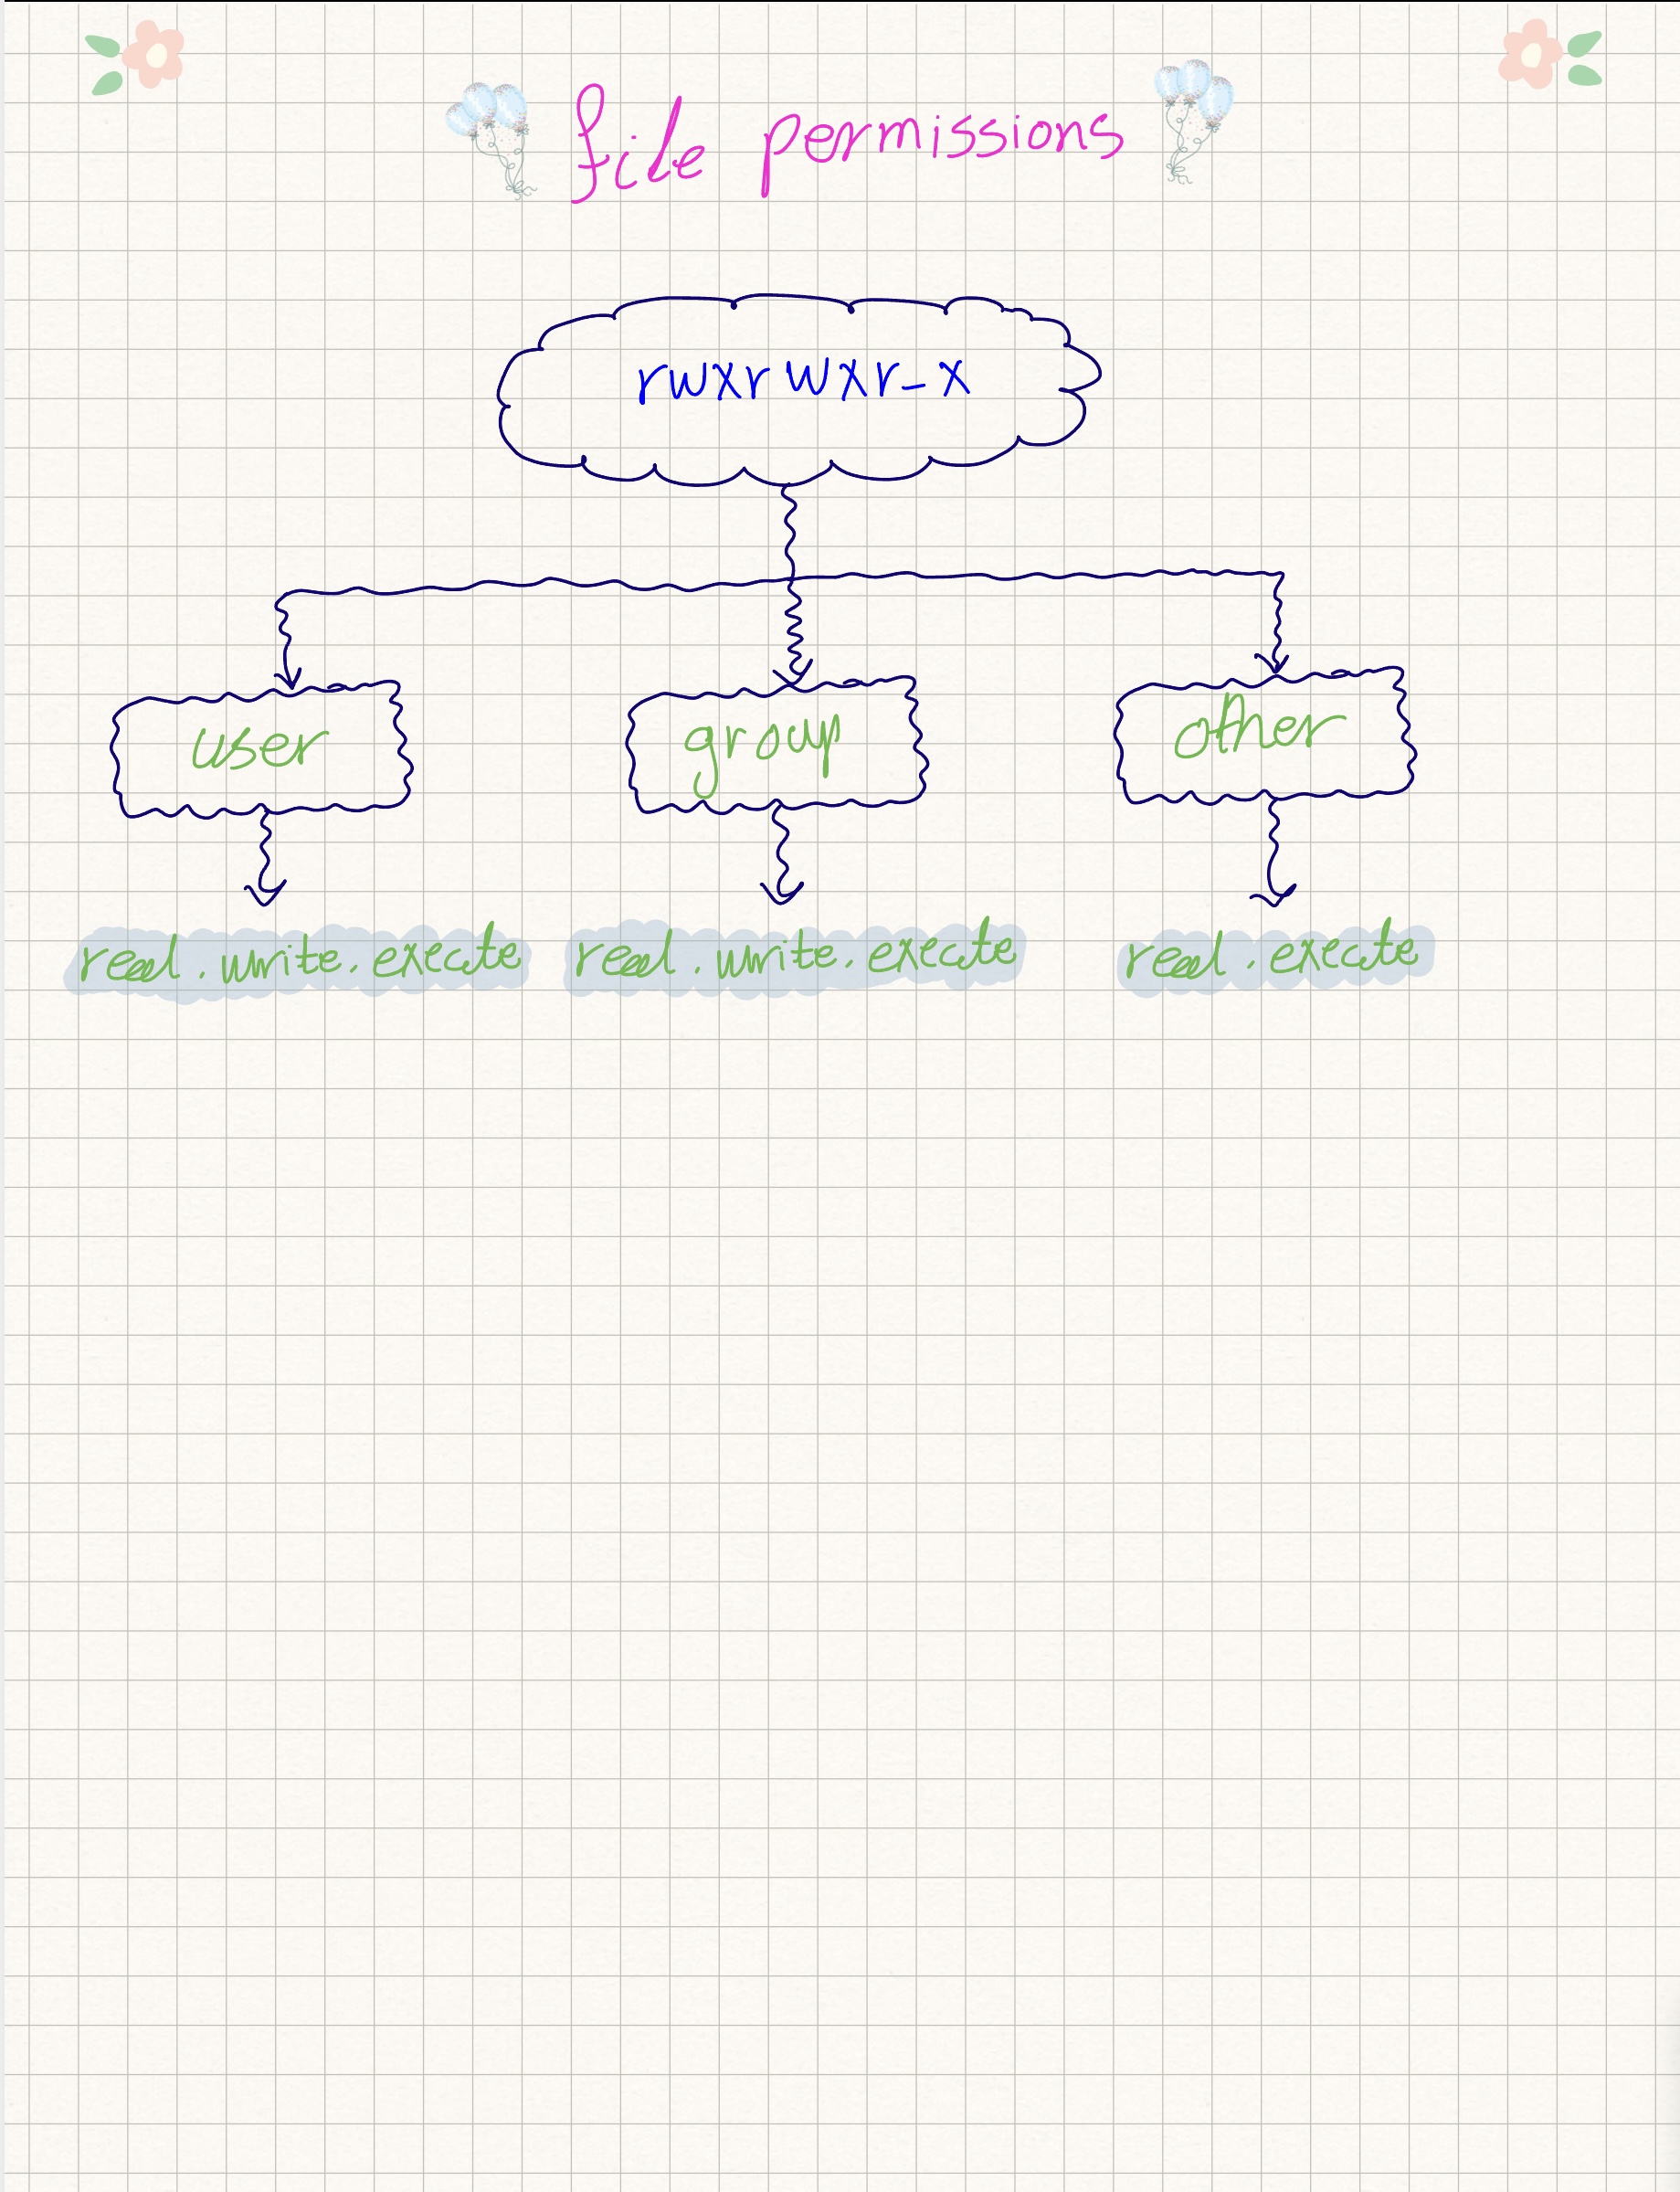 file permissions
rwxrwxr-x
user group other
read.write.execute read.write.execute read.execute